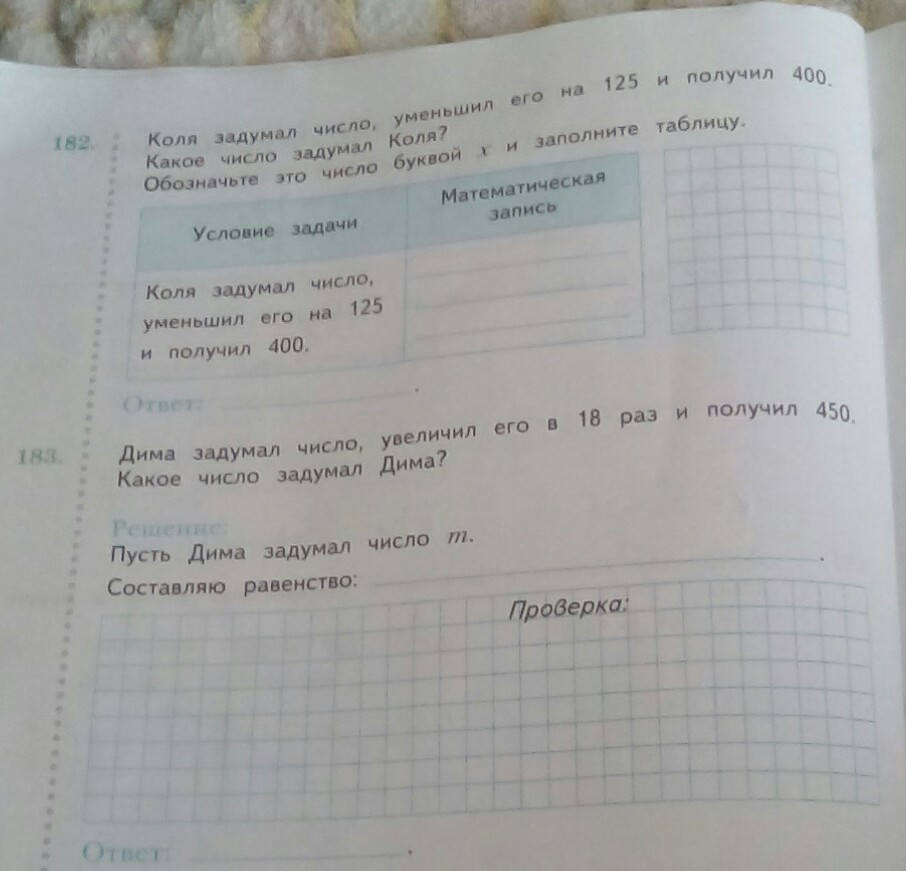 182. Коля задумал число, уменьшил его на 125 и получил 400.
Какое число задумал Коля?
Обозначьте это число буквой x и заполните таблицу.
Условие задачи
Математическая
запись
Коля задумал число,
уменьшил его на 125
и получил 400.
Ответ: .
183. Дима задумал число, увеличил его в 18 раз и получил 450.
Какое число задумал Дима?
Решение:
Пусть Дима задумал число m.
Составляю равенство: .
Проверка:
Ответ: .